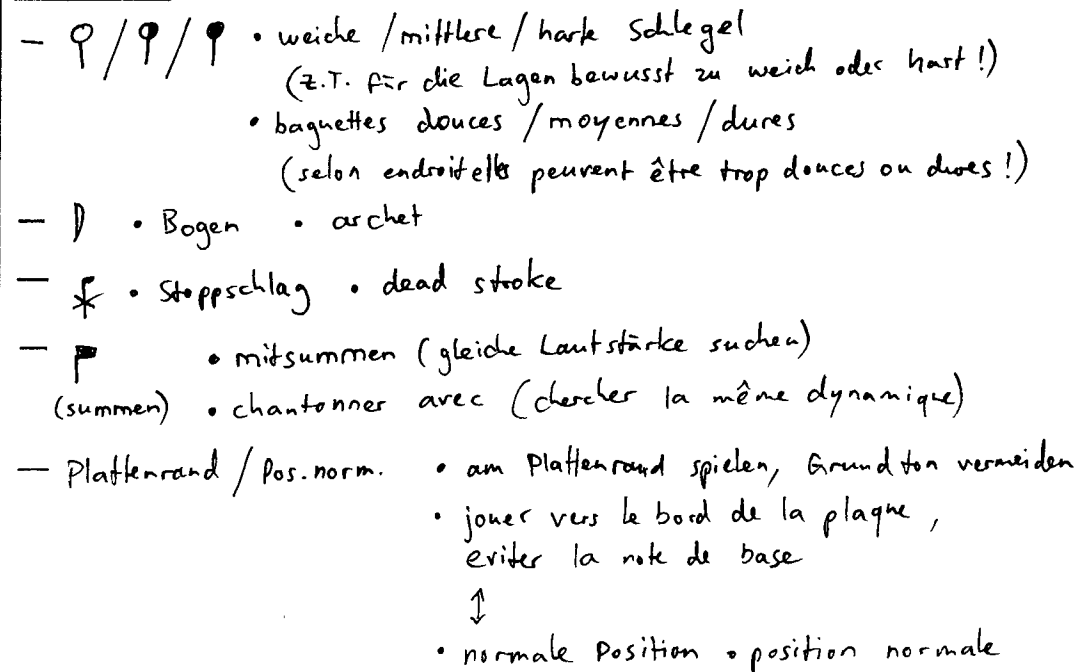 – / / • weiche / mittlere / harte Schlegel
(z.T. für die Lagen bewusst zu weich oder hart!)
• baguettes douces / moyennes / dures
(selon endroit elles peuvent être trop douces ou dures!)
– • Bogen • archet
– • Stoppschlag • dead stroke
– • mitsummen (gleiche Lautstärke suchen)
(summen) • chantonner avec (chercher la même dynamique)
– Plattenrand / Pos. norm. • am Plattenrand spielen, Grundton vermeiden
• jouer vers le bord de la plaque,
eviter la note de base
↕
• normale Position • position normale